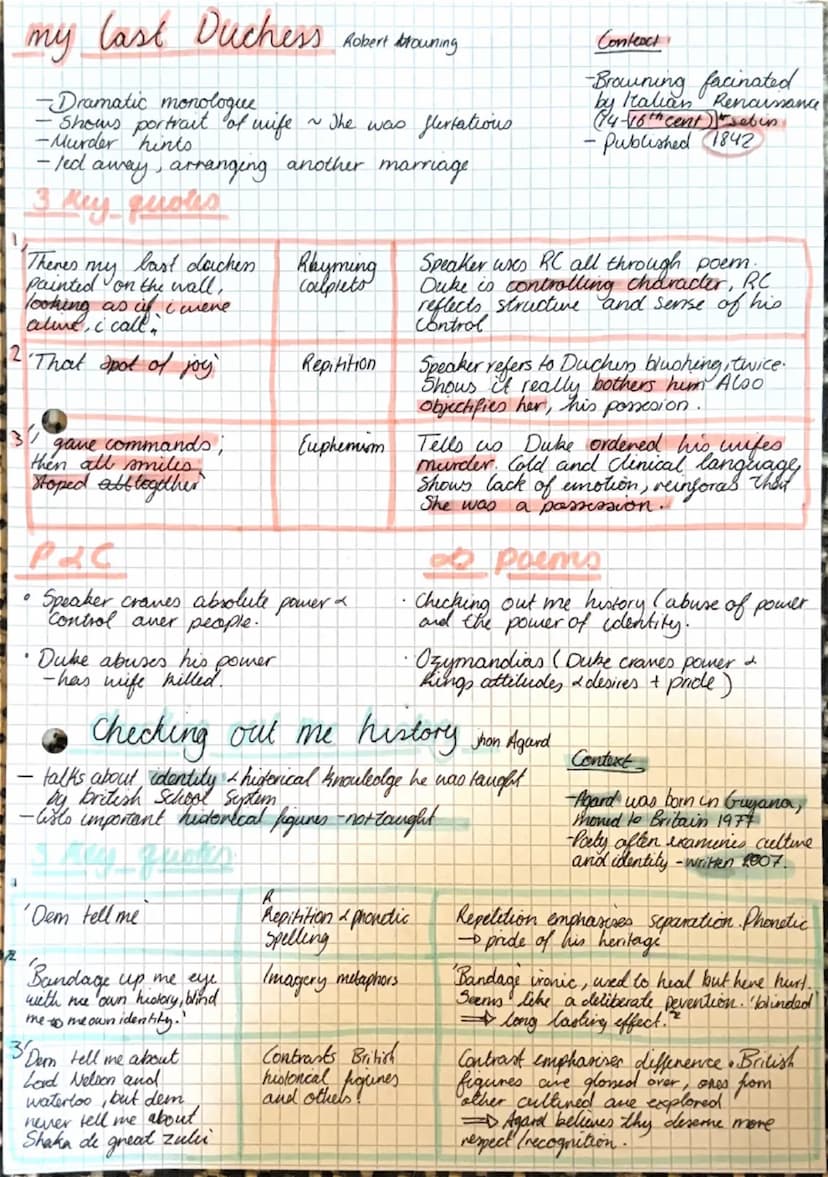 my last Duchess Robert browning
Context
- Dramatic monologue
- Shows portrait of wife ~ She was flirtatious
- Murder hints
- led away, arranging another marriage
- Browning facinated
by Italian Renaissance
(14-16th cent)
- Published 1842
3 Key quotes
1
'Theres my last duchess
painted on the wall,
looking as if i were
alive, i call,
Rhyming
couplets
Speaker uses RC all through poem.
Duke is controlling character, RC
reflects structure and sense of his
control
2
'That spot of joy'
Repitition
Speaker refers to Duchess blushing, twice.
Shows it really bothers him Also
objectifies her, his possesion.
3
'I gave commands;
then all smiles
stoped alltogether'
Euphemism
Tells us Duke ordered his wifes
murder. Cold and clinical language,
shows lack of emotion, reinforces that
She was a possession.
P & C
• Speaker craves absolute power &
control over people.
• Duke abuses his power
- has wife killed.
poems
• Checking out me history (abuse of power
and the power of identity.
• Ozymandias (Duke craves power &
kings attitudes & desires + pride)
Checking out me history Jhon Agard
- talks about identity & historical knowledge he was taught
by british School System
- Lists important historical figures - not taught
Context
- Agard was born in Guyana,
moved to Britain 1977
- Poety often examines culture
and identity - written 2007.
3 Key quotes
1
'Dem tell me'
Repitition & phonetic
Spelling
Repetition emphasises separation. Phonetic
→ pride of his heritage
2
'Bandage up me eye
with me own history, blind
me to me own identity.'
Imagery metaphors
'Bandage' ironic, used to heal but here hurt.
Seems like a deliberate pevention. 'blinded'
⇒ long lasting effect.
3
'Dem tell me about
Lord Nelson and
waterloo, but dem
never tell me about
Shaka de great zulu'
Contrasts British
historical figures
and others!
Contrast emphasises difference. British
figures are glossed over, ones from
other cultured are explored
⇒ Agard believes thy deserve more
respect/recognition.